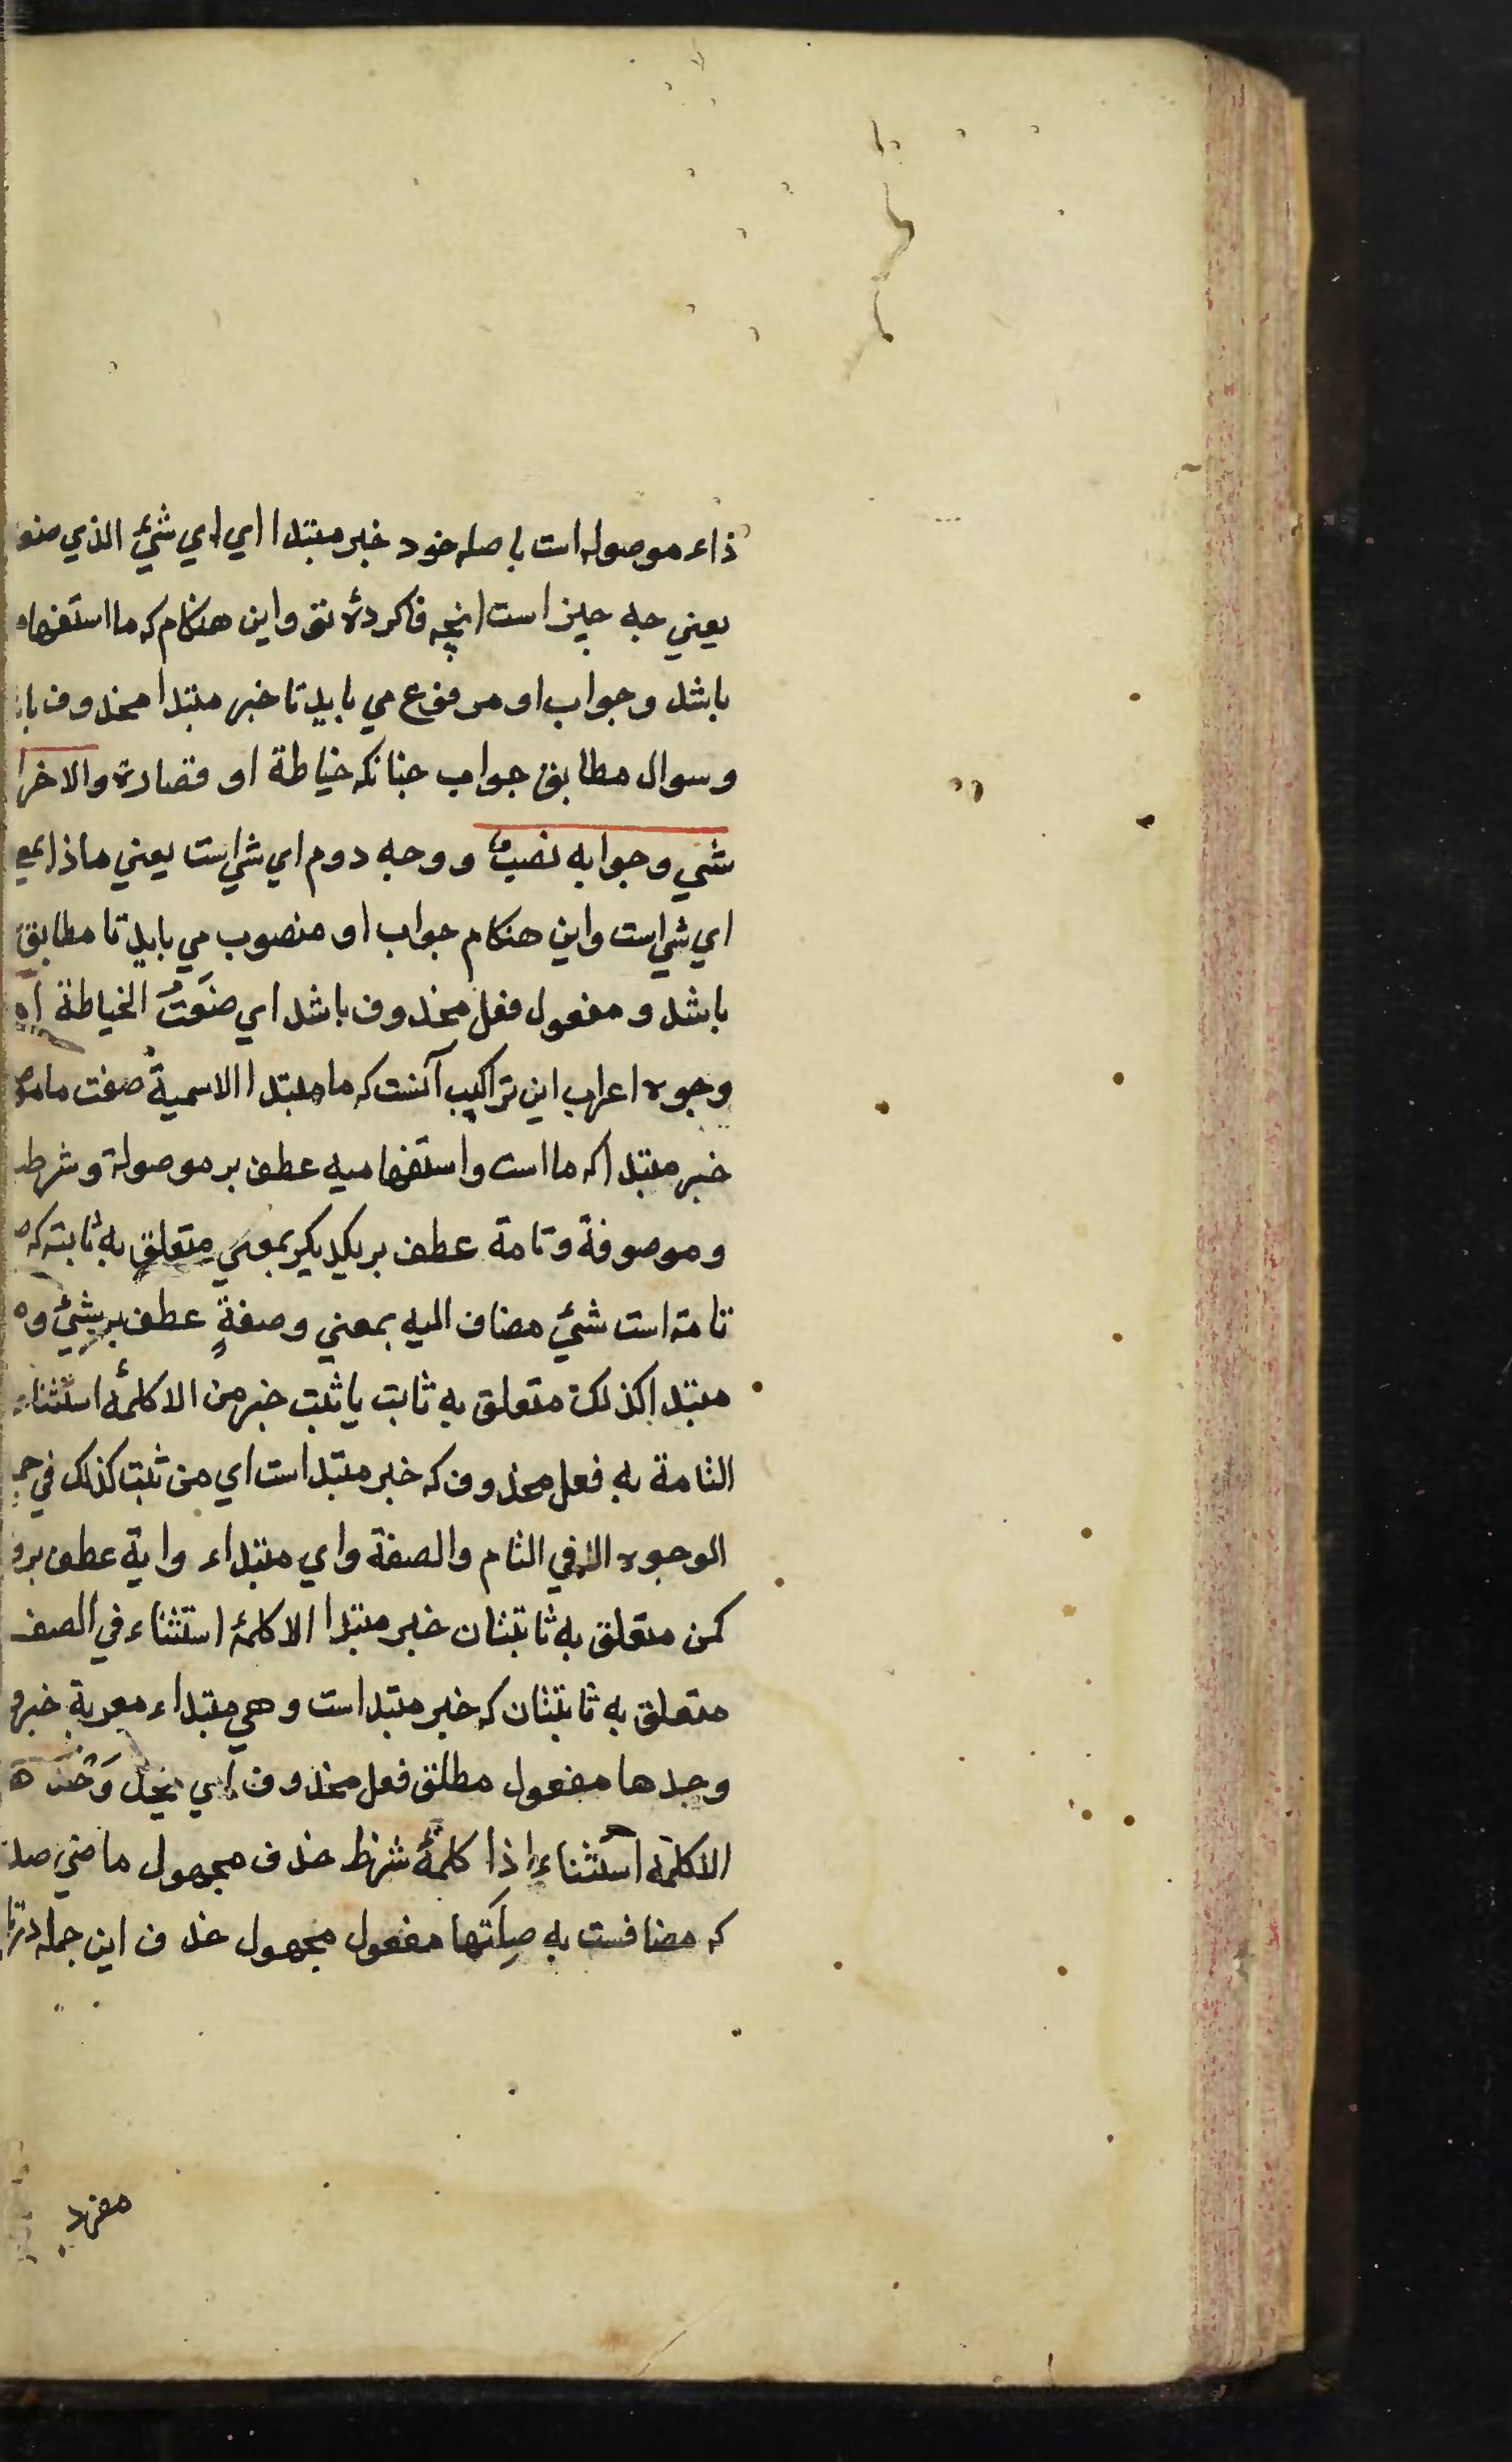 ذاء موصوله است با صله خود خبر مبتدا اي اي شئ الذي صنو
يعني جه جيز است انچه فاكردهٔ تو واين هنكام كه ما استفهام
باشد وجواب او مرفوع مي بايد تا خبر مبتدا محذوف با
وسوال مطابق جواب جنانكه خياطة او قصارة والاخر ا
شي وجوابه نصبٌ ووجه دوم اي شي است يعني ماذا بمع
اي شي است واين هنكام جواب او منصوب مي بايد تا مطابق
باشد ومفعول فعل محذوف باشد اي صنَعتُ الخياطة اه
وجوه اعراب اين تراكيب آنست كه ما مبتدا الاسمية صفت ما مو
خبر مبتدا كه ما است واستفهاميه عطف بر موصولة وشرط
وموصوفة وتامة عطف بر يكديكر بمعني متعلق به ثابته كه
تامة است شئ مضاف اليه بمعني وصفةٍ عطف بر شئ و
مبتدا كذلك متعلق به ثابت يا ثبت خبر من الا كلمهٔ استثناء
التامة به فعل محذوف كه خبر مبتدا است اي من ثبت كذلك في
الوجوه الا في التام والصفة واي مبتداء واية عطف برو
كمن متعلق به ثابتتان خبر مبتدا الا كلمهٔ استثناء في الصف
متعلق به ثابتتان كه خبر مبتدا است وهي مبتداء معربة خبر
وحدها مفعول مطلق فعل محذوف اي
الا كلمهٔ استثناء اذا كلمهٔ شرط حذف مجهول ماضي صد
كه مضافست به صِلَتها مفعول مجهول حذف اين جمله در
مفرد